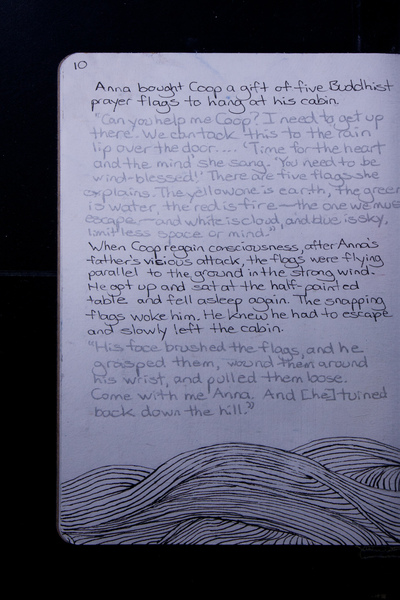 10
Anna bought Coop a gift of five Buddhist
prayer flags to hang at his cabin.
"Can you help me Coop? I need to get up
there'. We can tack 'this to the rain
lip over the door.... 'Time for the heart
and the mind' she sang. 'You need to be
wind-blessed!' There are five flags she
explains. The yellow one is earth, the green
is water, the red is fire—the one we must
escape—and white is cloud, and blue is sky,
limitless space or mind.",
When Coop regain consciousness, after Anna's
father's vicious attack, the flags were flying
parallel to the ground in the strong wind.
He got up and sat at the half-painted
table and fell asleep again. The snapping
flags woke him. He knew he had to escape
and slowly left the cabin.
"His face brushed the flags, and he
grasped them, wound them around
his wrist, and pulled them loose.
Come with me Anna. And [he] turned
back down the hill."